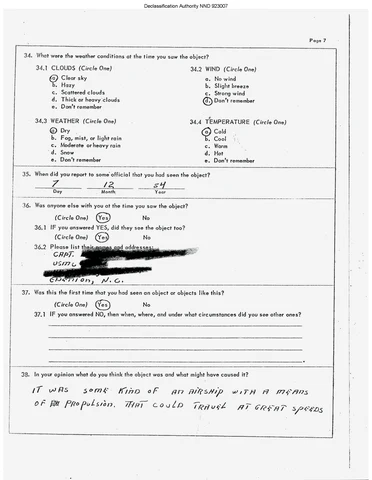 Declassification Authority NND 923007
Page 7
34. What were the weather conditions at the time you saw the object?
34.1 CLOUDS (Circle One)
a. Clear sky
b. Hazy
c. Scattered clouds
d. Thick or heavy clouds
e. Don't remember
34.2 WIND (Circle One)
a. No wind
b. Slight breeze
c. Strong wind
d. Don't remember
34.3 WEATHER (Circle One)
a. Dry
b. Fog, mist, or light rain
c. Moderate or heavy rain
d. Snow
e. Don't remember
34.4 TEMPERATURE (Circle One)
a. Cold
b. Cool
c. Warm
d. Hot
e. Don't remember
35. When did you report to some official that you had seen the object?
7 12 54
Day Month Year
36. Was anyone else with you at the time you saw the object?
(Circle One) Yes No
36.1 IF you answered YES, did they see the object too?
(Circle One) Yes No
36.2 Please list their names and addresses:
CAPT.
USMC
N.C.
37. Was this the first time that you had seen an object or objects like this?
(Circle One) Yes No
37.1 IF you answered NO, then when, where, and under what circumstances did you see other ones?
38. In your opinion what do you think the object was and what might have caused it?
IT WAS SOME KIND OF AN AIRSHIP WITH A MEANS
OF PROPULSION. THAT COULD TRAVEL AT GREAT SPEEDS